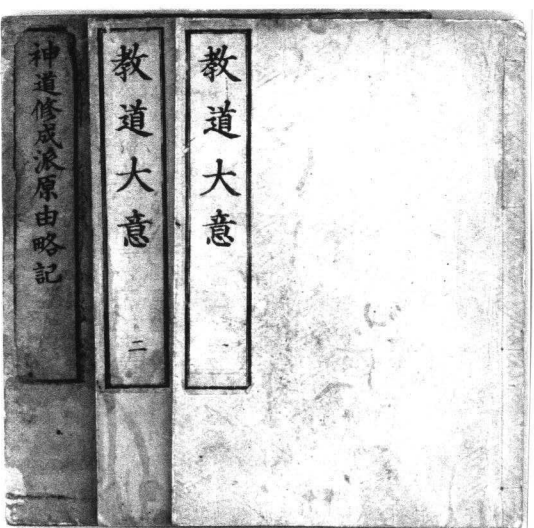 教道大意
教道大意 二
神道修成派原由略記